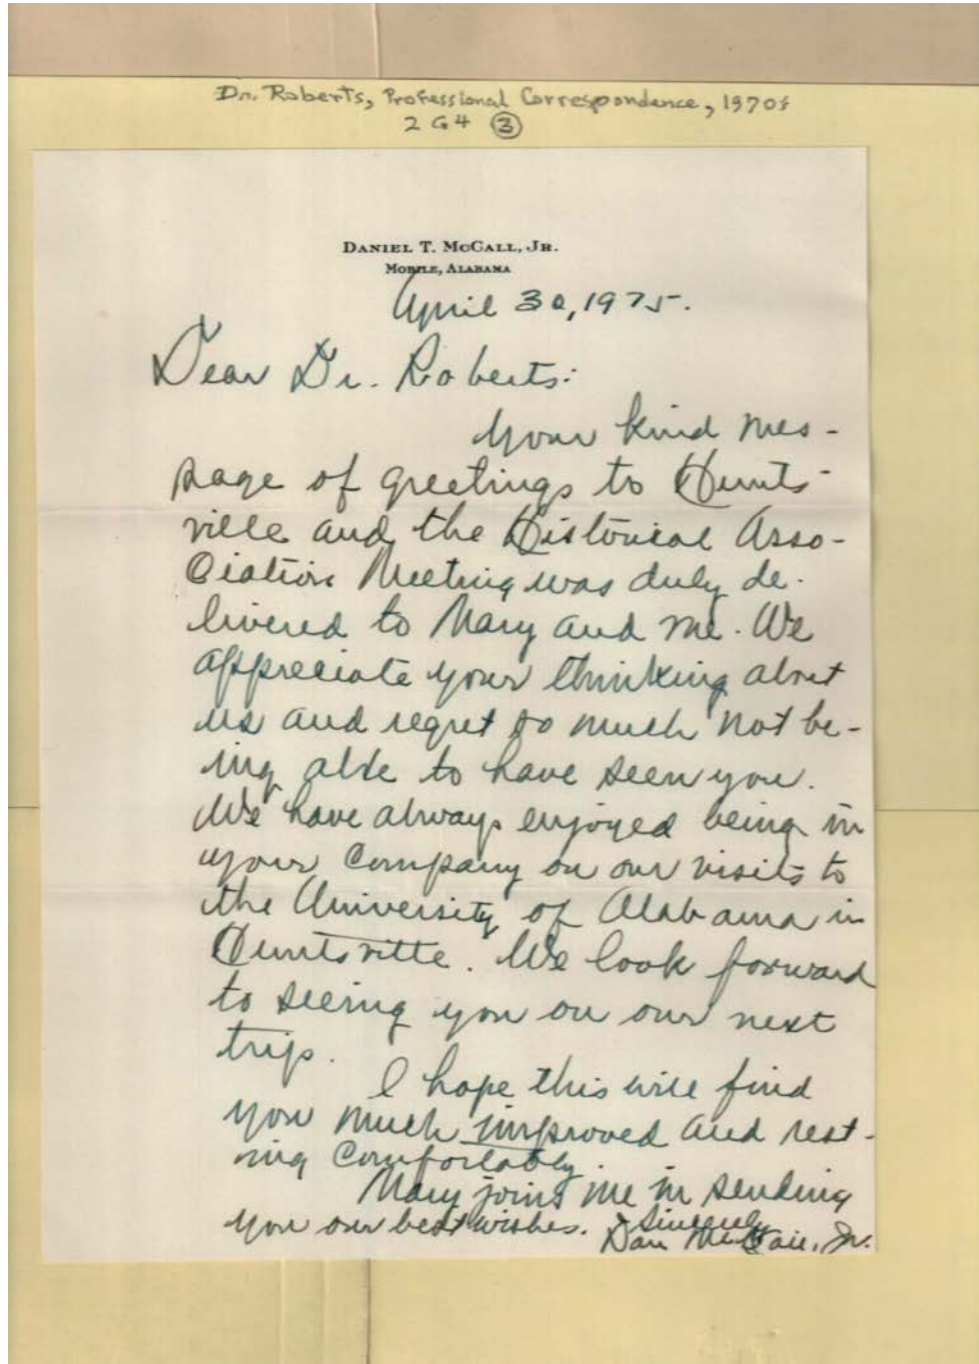 Dr. Roberts, Professional Correspondence, 1970s
2 G4 ③
DANIEL T. MCCALL, JR.
MOBILE, ALABAMA
April 30, 1975.
Dear Dr. Roberts:
Your kind mes-
sage of greetings to Hunts-
ville and the Historical Asso-
ciation Meeting was duly de-
livered to Mary and me. We
appreciate your thinking about
us and regret so much not be-
ing able to have seen you.
We have always enjoyed being in
your company on our visits to
the University of Alabama in
Huntsville. We look forward
to seeing you on our next
trip.
I hope this will find
you much improved and rest-
ing comfortably.
Mary joins me in sending
you our best wishes. Sincerely
Dan McCall, Jr.